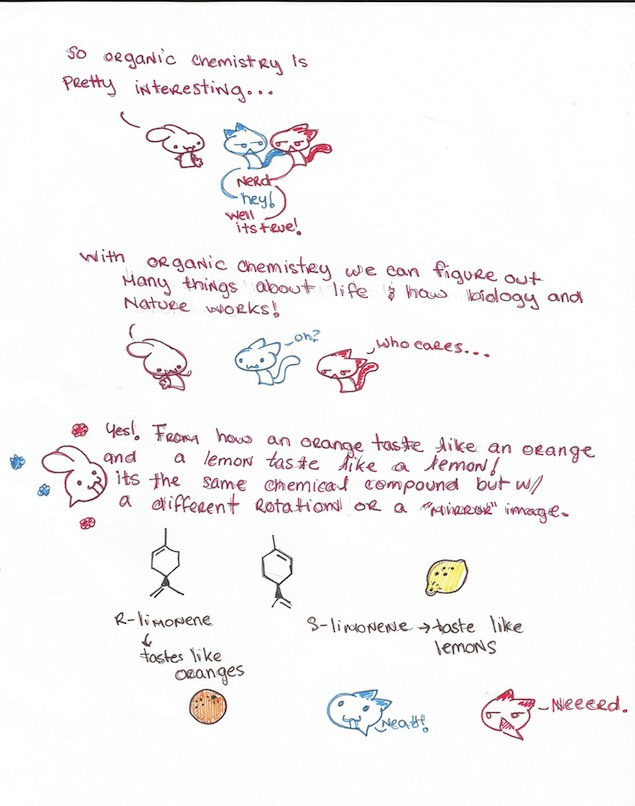 So organic chemistry is
pretty interesting...
Nerd
hey!
well
its true!
With organic chemistry we can figure out
many things about life & how biology and
nature works!
oh?
who cares...
Yes! From how an orange taste like an orange
and a lemon taste like a lemon!
its the same chemical compound but w/
a different rotation or a "mirror" image.
R-limonene
↓
tastes like
oranges
S-limonene → taste like
lemons
Neat!
Neeerd.